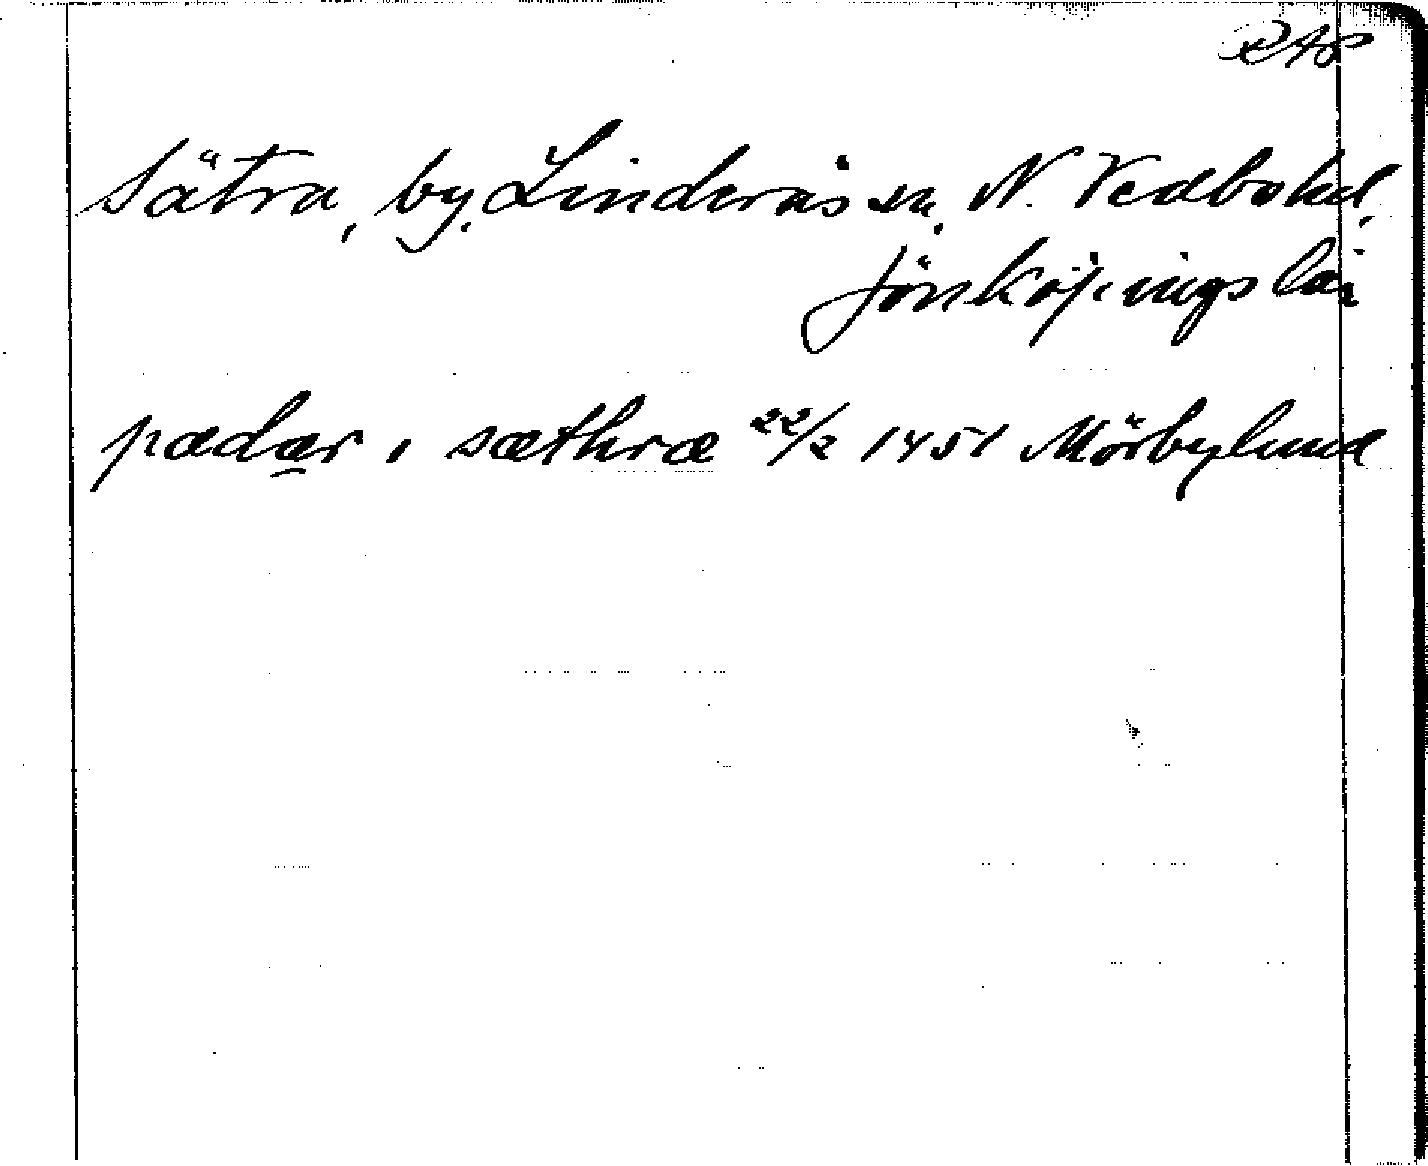 Sätra, by, Linderås sn, N. Vedbohd,
Jönköpings län
pædær i sæthræ 22/2 1451 Mörbylund